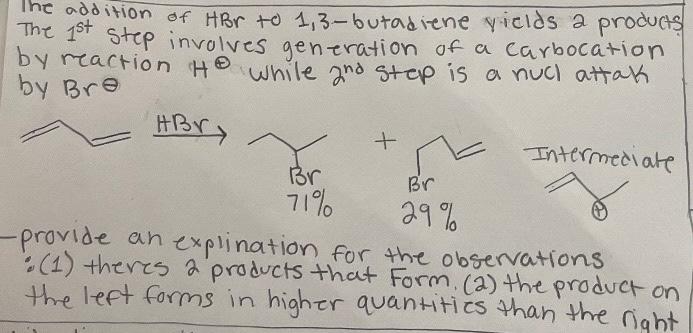 The addition of HBr to 1,3-butadiene yields 2 products
The 1st step involves generation of a carbocation
by reaction H⊕ while 2nd step is a nucl attak
by Br⊖
HBr
+
Intermediate
Br
Br
⊕
71%
29%
-provide an explination for the observations
:(1) theres 2 products that form. (2) the product on
the left forms in higher quantities than the right